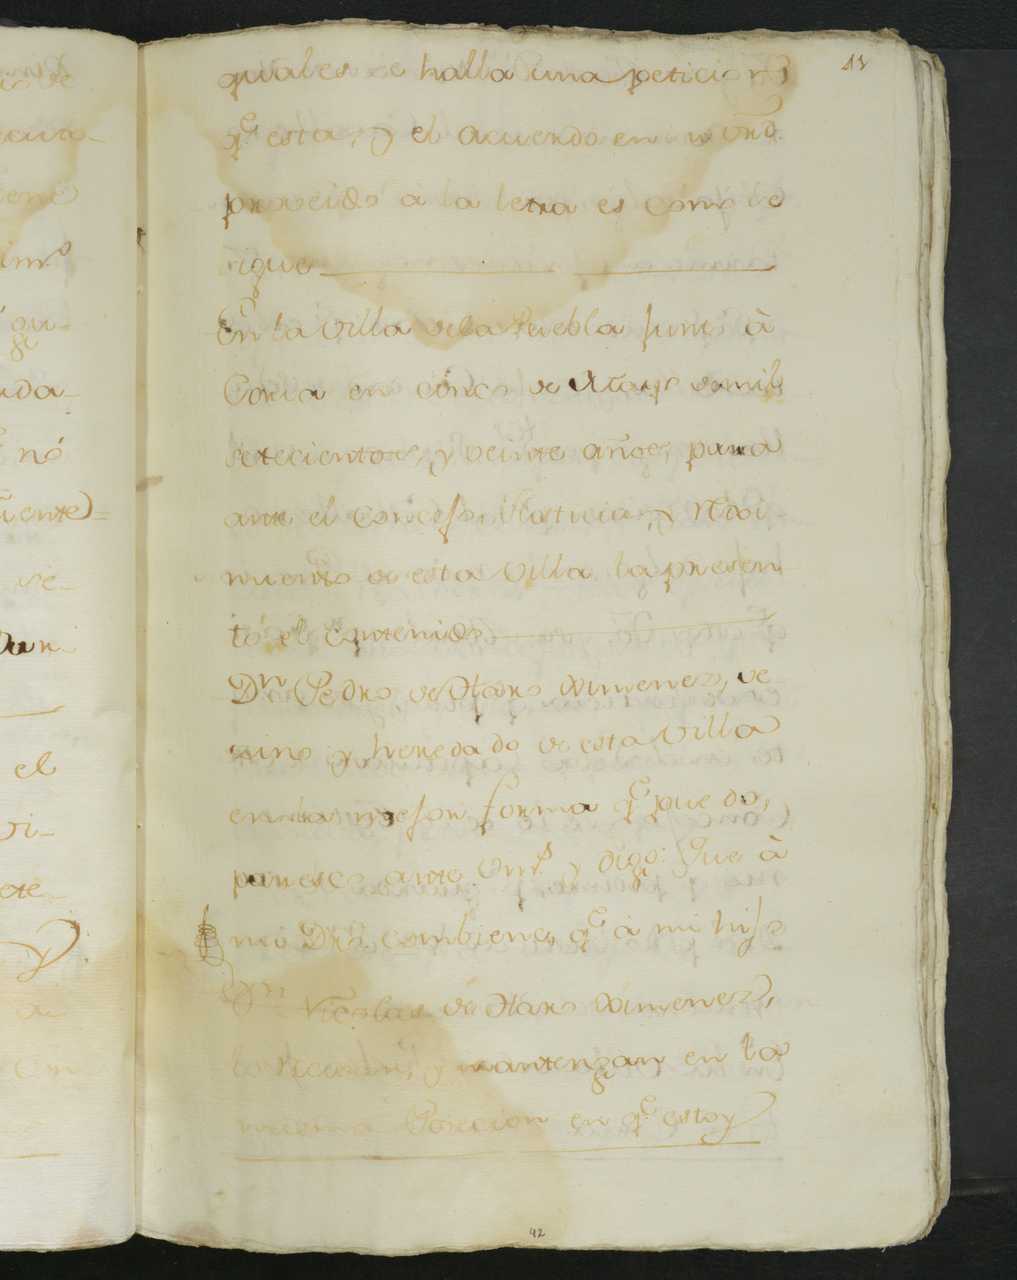 41
quales se halla una peticion
q.e esta, y el acuerdo en
proveido à la letra es como se
sigue
En la Villa de la Puebla junto à
Coria en once de Março de mil
setecientos, y veinte años, para
ante el Concejo, Justicia, y Rexi-
miento de esta Villa la presen-
tó el contenido
D.n Pedro de Haro Ximenez, ve
cino y heredado de esta Villa
en la mejor forma q.e puedo,
paresco ante Vm.s y digo: Que à
mi Dro. combiene, q.e à mi hijo
D.n Nicolas de Haro Ximenez,
lo reciban, y mantengan en la
misma Posecion en q.e estoy
42